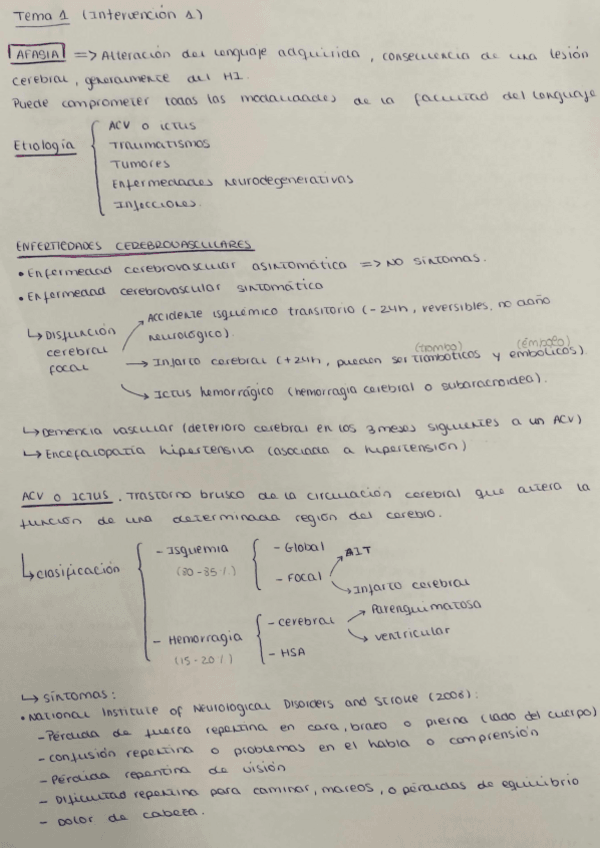 Tema 1 (Intervención 1)
AFASIA => Alteración del lenguaje adquirida, consecuencia de una lesión
cerebral, generalmente del HI.
Puede comprometer todas las modalidades de la facultad del lenguaje
Etiología
ACV o ICTUS
Traumatismos
Tumores
Enfermedades neurodegenerativas
Infecciones.
ENFERMEDADES CEREBROVASCULARES
• Enfermedad cerebrovascular asintomática => NO síntomas.
• Enfermedad cerebrovascular sintomático
↳ Disfunción cerebral focal
→ Accidente isquémico transitorio (-24h, reversibles, no daño
neurológico).
(trombo) (émbolo)
→ Infarto cerebral (+24h, pueden ser trombóticos y embólicos).
→ Ictus hemorrágico (hemorragia cerebral o subaracnoidea).
↳ Demencia vascular (deterioro cerebral en los 3 meses siguientes a un ACV)
↳ Encefalopatía hipertensiva (asociada a hipertensión)
ACV o ICTUS. Trastorno brusco de la circulación cerebral que altera la
función de una determinada región del cerebro.
↳ Clasificación
- Isquemia
(80-85%)
- Global
- Focal
→ AIT
→ Infarto cerebral
- Hemorragia
(15-20%)
- cerebral
→ Parenquimatosa
→ ventricular
- HSA
↳ Síntomas:
• National Institute of Neurological Disorders and Stroke (2006):
- Pérdida de fuerza repentina en cara, brazo o pierna (lado del cuerpo)
- confusión repentina o problemas en el habla o comprensión
- Pérdida repentina de visión
- Dificultad repentina para caminar, mareos, o pérdidas de equilibrio
- Dolor de cabeza.